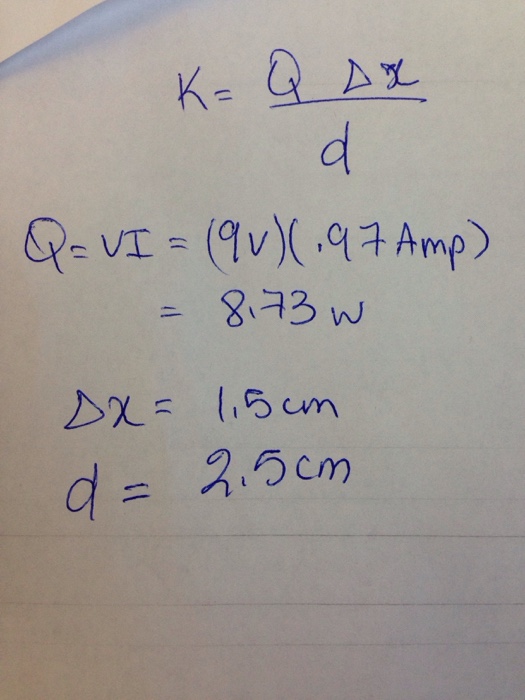 K = Q Δx
d
Q = VI = (9V)(.97 Amp)
= 8.73 W
Δx = 1.5 cm
d = 2.5 cm